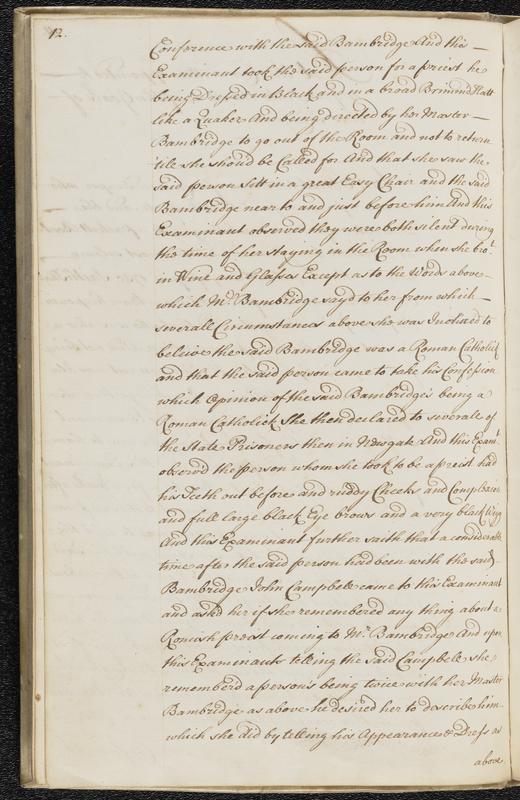 12.
Conference with the said Bambridge And this
Examinant took the said person for a priest he
being Dressed in Black and in a broad Brimmd Hatt
like a Quaker And being directed by her Master
Bambridge to go out of the Room and not to return
till she should be Called for And that she saw the
said person Sitt in a great Easy Chair and the said
Bambridge near to and just before him And this
Examinant observed they were both silent during
the time of her staying in the Room when she bro.t
in Wine and Glasses Except as to the Words above
which Mr. Bambridge sayd to her from which
severall Circumstances above she was Inclined to
beleive the said Bambridge was a Roman Catholick
and that the said person came to take his Confession
which Opinion of the said Bambridge's being a
Roman Catholick She then declared to severale of
the State Prisoners then in Newgate And this Exam.t
observd the person whom she took to be a preist had
his Teeth out before and ruddy Cheeks and Complexion
and full large black Eye brows and a very black Wigg
And this Examinant further saith that a considerable
time after the said person had been with the said
Bambridge John Campbele came to this Examinant
and askd her if she remembered any thing about a
Romish preist coming to Mr. Bambridge And upon
this Examinants telling the said Campbele she
rememberd a persons being twice with her Master
Bambridge as above he desired her to describe him
which she did by telling his Appearance & Dress as
above